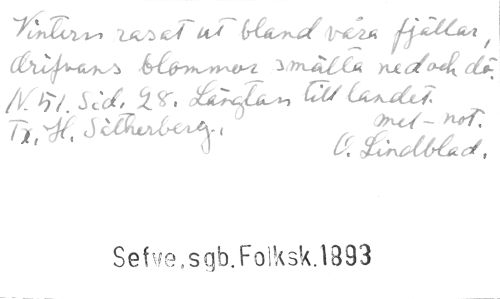 Vintern rasat ut bland våra fjällar,
drifvans blommor smälta ned och dö.
N. 51. Sid. 28. Längtan till landet.
Tx. H. Sätherberg. mel-not.
O. Lindblad.
Sefve, sgb. Folksk. 1893